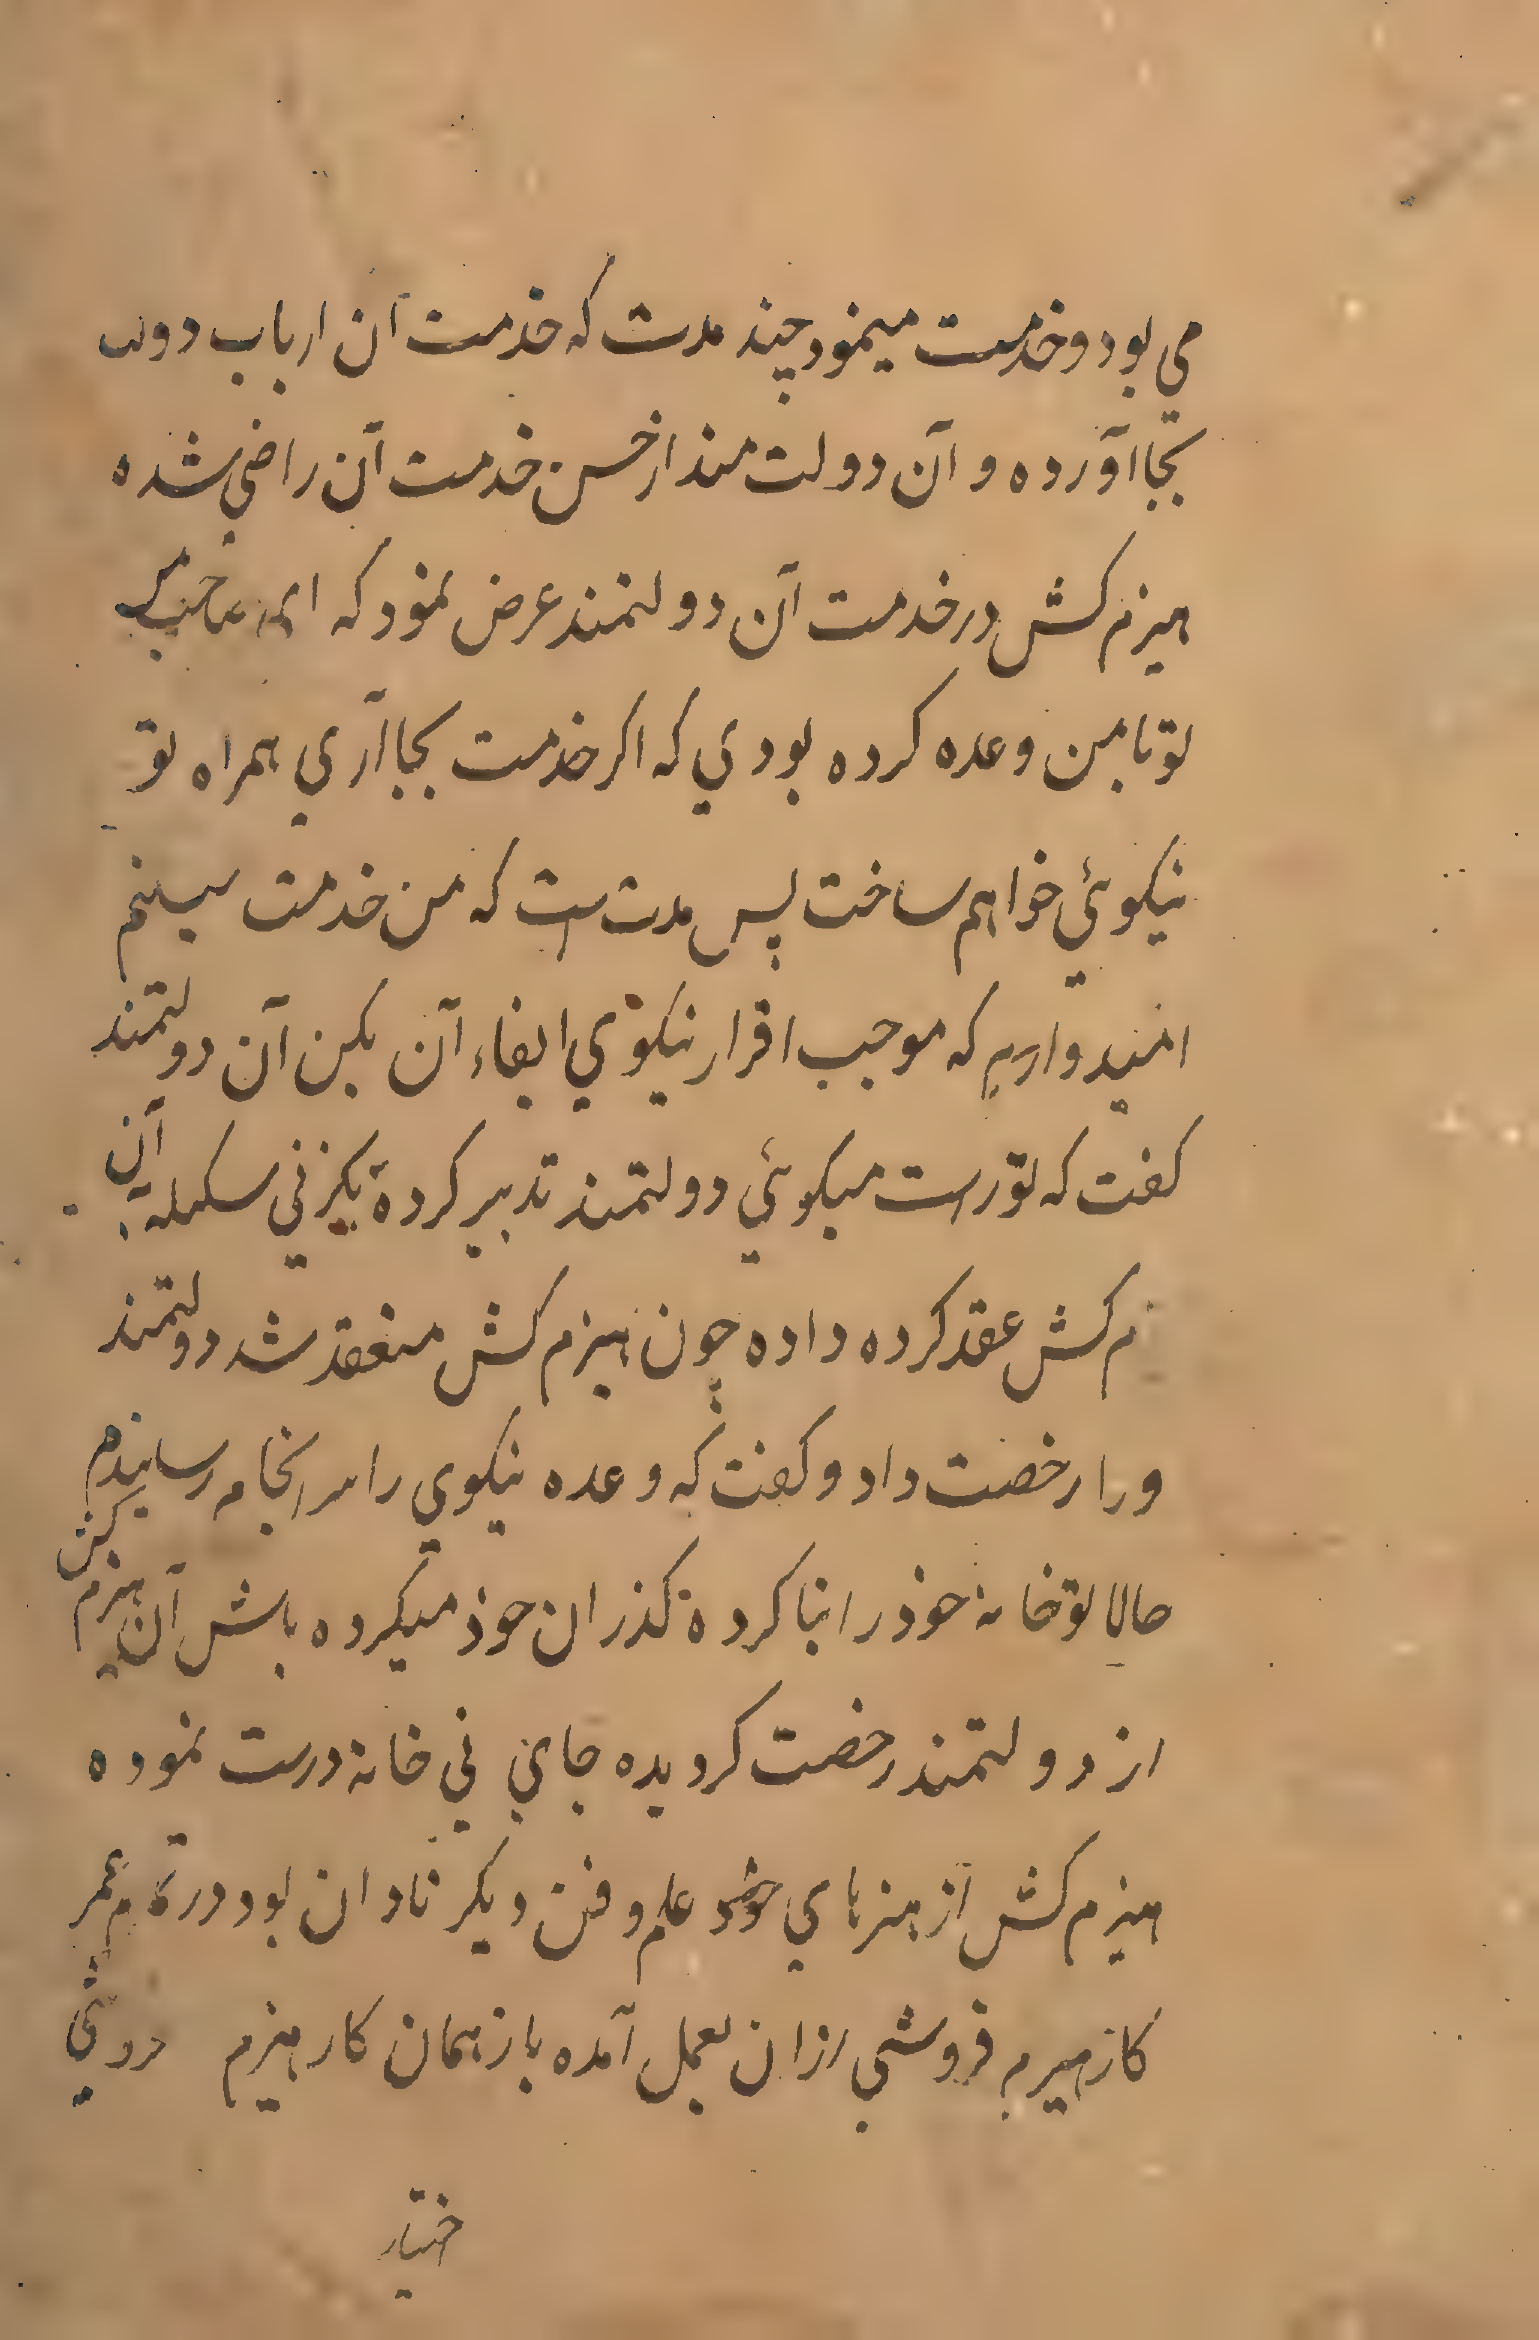 مي بود و خدمت مينمود چند مدت كه خدمت آن ارباب دولت
بجا آورده و آن دولت مند از حسن خدمت آن راضي شده
هيزم كش در خدمت آن دولتمند عرض نمود كه اي صاحب
تو با من وعده كرده بودي كه اكر خدمت بجا آري همراه تو
نيكوئي خواهم ساخت پس مدت ست كه من خدمت ميكنم
اميدواريم كه موجب اقرار نيكوي ايفاء آن بكن آن دولتمند
كفت كه تو راست ميكوئي دولتمند تدبير كرده يكزني آن
م كش عقد كرده داده چون هيزم كش منعقد شد دولتمند
ورا رخصت داد و كفت كه وعده نيكوي را سرانجام رسانيدم
حالا تو خانه خود را بنا كرده كذران خود ميكرده باش آن هيزم كش
از دولتمند رخصت كرديده جاي ني خانه درست نموده
هيزم كش از هنرهاي علم و فن ديكر نادان بود عمر
كار هيزم فروشي ازان بعمل آمده باز همان كار هيزم فروشي
اختيار